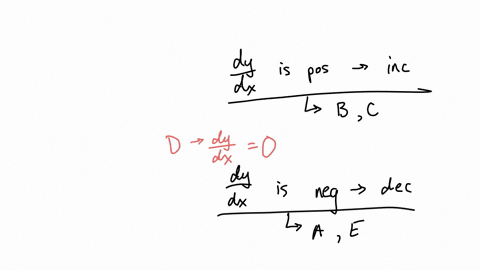 dy/dx is pos → inc
↳ B, C
D → dy/dx = 0
dy/dx is neg → dec
↳ A, E